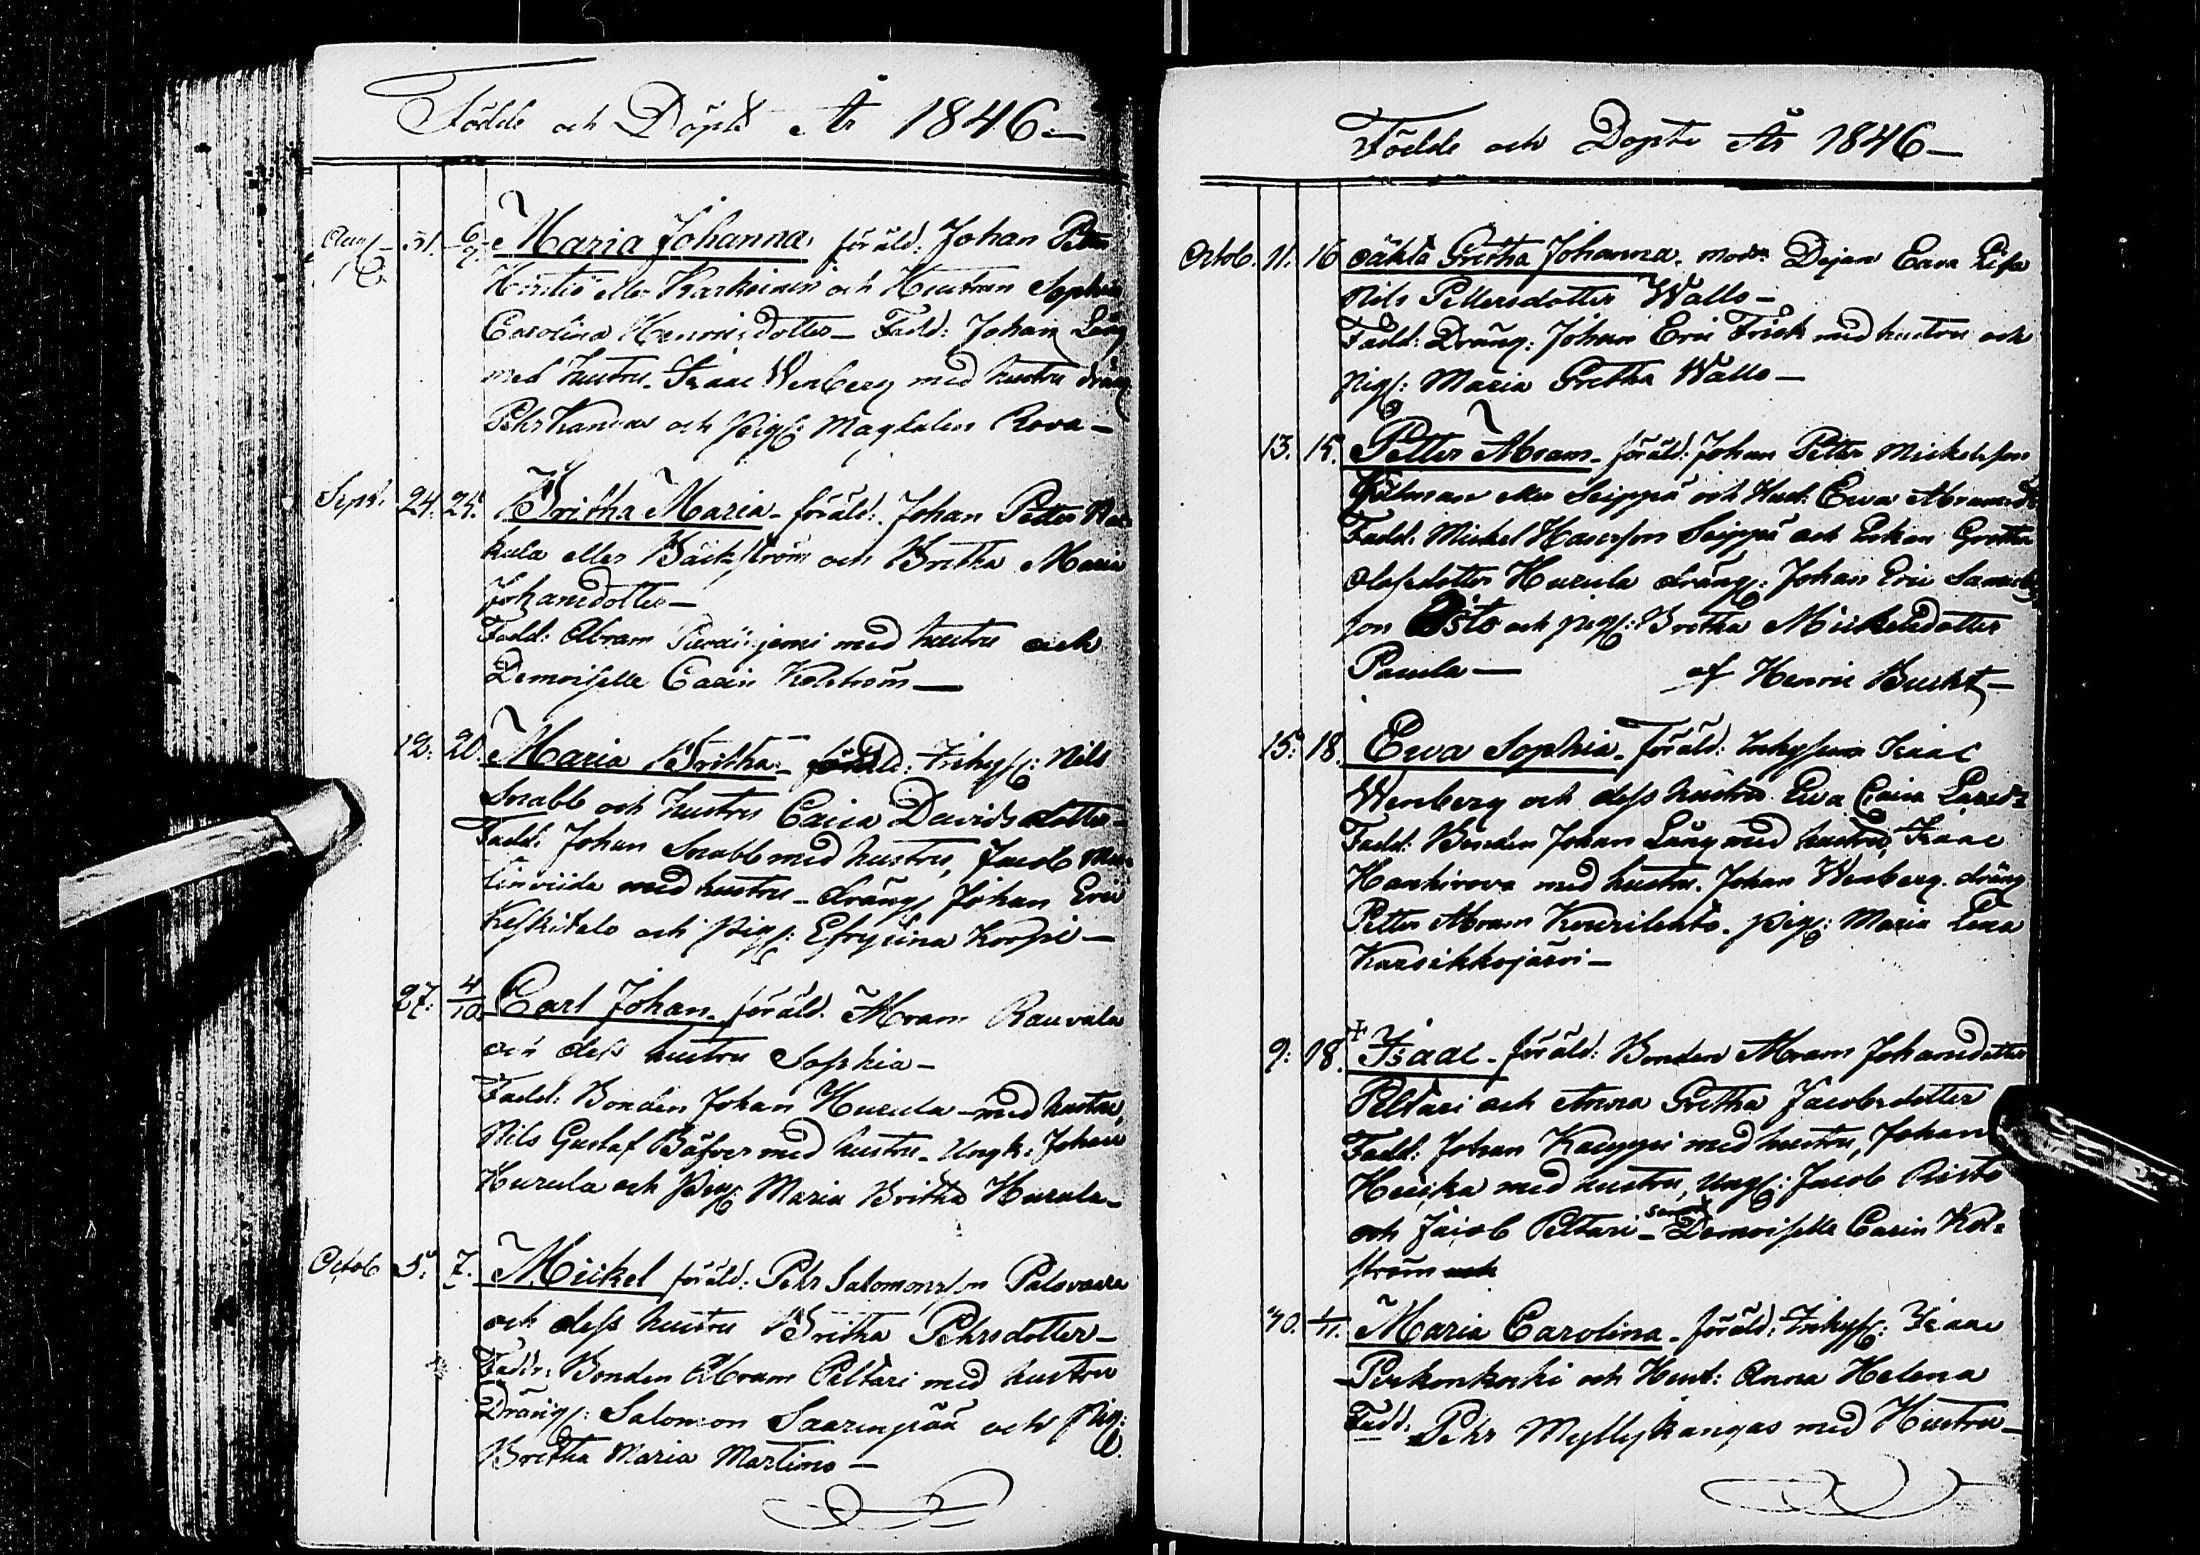 Födde och Döpte År 1846.
Aug. 31. 6/9. Maria Johanna, föräld. Johan Petter
eller Karkoinen och Hustrun Sophia
Carolina Henricsdotter – Fadd: Johan Lång
med hustru. Isaac Wenberg med hustru dräng
Pehr Kandas och pig: Magdalen Rova –
Sept. 24. 25. Britha Maria – föräld. Johan Petter
kula eller Bäckström och Britha Maria
Johansdotter –
Fadd: Abram med hustru och
Demoiselle Carin Kolström –
12. 20. Maria Britha – föräld: Inhys: Nils
Snabb och hustru Cajsa Davidsdotter –
Fadd: Johan Snabb med hustru, Jacob
med hustru – dräng Johan Eric
Keskitalo och pig: Efrosina Korpi –
27. 4/10. Carl Johan – föräld. Abram Rauvala
och dess hustru Sophia –
Fadd: Bonden Johan Hurula med hustru,
Nils Gustaf Bäfver med hustru – Ungk: Johan
Hurula och Pig: Maria Britha Hurula –
Octob 5. 7. Mickel föräld: Pehr Salomonsson Palovaara
och dess hustru Britha Pehrsdotter –
Faddr: Bonden Abram Peltari med hustru
Dräng: Salomon Saarenpää och pig:
Britha Maria Martimo –
Födde och Döpte År 1846 –
Octob. 11. 16 oäkta Gretha Johanna. modr. Dejan Eava Lisa
Nils Pettersdotter Wallo –
Fadd: Dräng: Johan Eric Frisk med hustru och
pig: Maria Gretha Wallo –
13. 15. Petter Abram – föräld: Johan Petter Mickelsson
eller Seippä och Hust: Ewa Abramsd:
Fadd: Mickel Hansson Seippä och Enkan Gretha
Olofsdotter Hurula dräng: Johan Eric Samuels
son Risto och pig: Britha Mickelsdotter
Paula – af Henric Bucht –
15. 18. Ewa Sophia – föräld: Inhyses Isaac
Wenberg och dess hustru Ewa Cajsa Larsd:
Fadd: Bonden Johan Lång med hustru, Isaac
Hankirova med hustru. Johan Wenberg. dräng
Petter Abram Kourilehto. pig: Maria Lena
Karsikkojärvi –
9. 18. + Isaac – föräld: Bonden Abram Johansdotter
Peltari och Anna Gretha Jacobsdotter
Fadd: Johan Kauppi med hustru, Johan
Heicka med hustru, Ungk: Jacob Risto
och Jacob Peltari – samt Demoiselle Carin Kol=
ström och
30. 1/11. Maria Carolina – föräld: Inhys: Isaac
Perkonkoski och Hust: Anna Helena
Fadd. Pehr Myllykangas med Hustru –